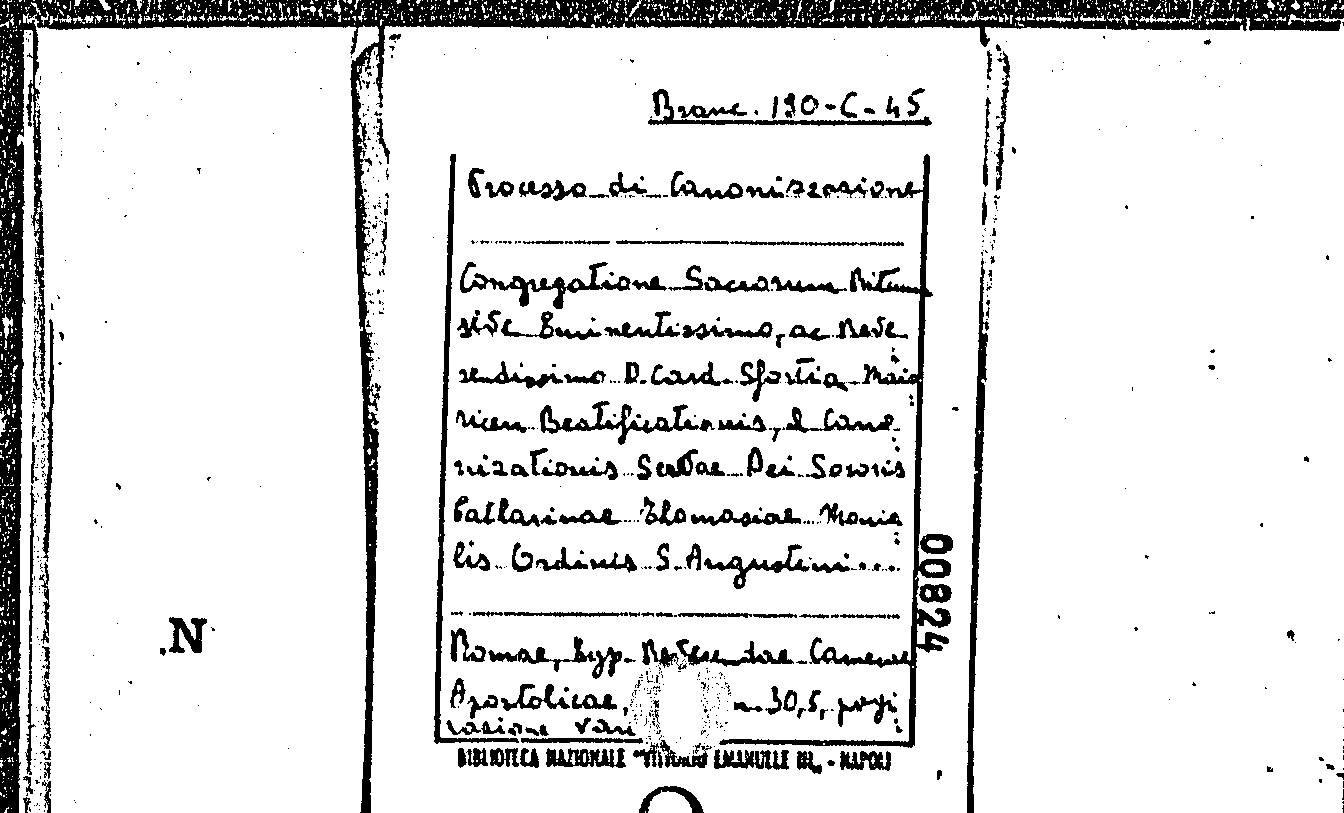 Branc. 190-C-45.
Processo di Canonizzazione
Congregatione Sacrorum Rituum
sive Eminentissimo, ac Reve
rendissimo D. Card. Sfortia Maio
ricen Beatificationis, & Cano
nizationis Servae Dei Sororis
Catharinae Thomasiae Monia
lis Ordinis S. Augustini...
Romae, Typ. Reverendae Camerae
Apostolicae, 30,5, pagi
nazione
00824
.N
BIBLIOTECA NAZIONALE "VITTORIO EMANUELE III„ - NAPOLI